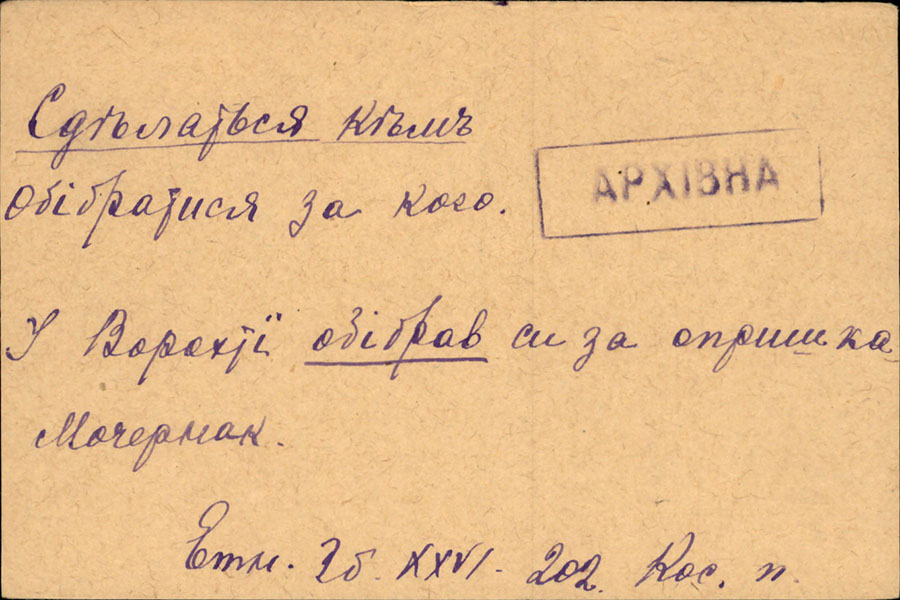 Сдѣлаться кѣмъ
АРХІВНА
Обібратися за кого.
У Ворохті обібрав си за опришка
Мочернак.
Етн. Зб. XXVI. 202. Кос. п.